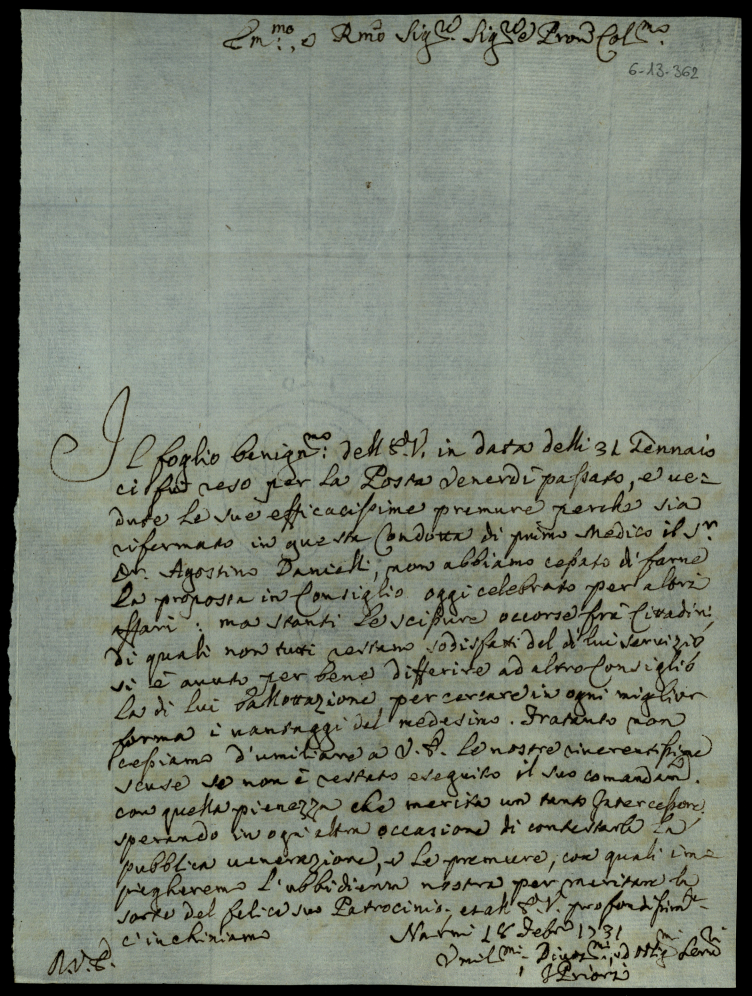 Em.mo, e Rmo Sig.re Sig.re e Pron Col.mo
6-13-362
Il foglio benign.mo dell' E.V. in data delli 31 Gennaio
ci fu reso per la Posta Venerdì passato, e ve=
dute le sue efficacissime premure perche sia
rifermato in questa Condotta di primo Medico il S.r
Dr. Agostino Danielli, non abbiamo cessato di farne
la proposta in Consiglio oggi celebrato per altri
affari: ma stanti le scissure occorse frà Cittadini,
di quali non tutti restano sodisfatti del di lui servizio
si è avuto per bene differire ad altro Consiglio
la di lui ballottazione per cercare in ogni miglior
forma i vantaggi del medesimo. Fratanto non
cessiamo d'umiliare a V.E. le nostre riverentissime
scuse se non è restato eseguito il suo comandam.
con quella pienezza che merita un tanto Intercessore
sperando in ogni altra occasione di contestarle la
pubblica venerazione, e le premure, con quali im=
piegheremo l'ubbidienza nostra per meritare la
sorte del felice suo Patrocinio, et all' E.V. profondissim.e
c'inchiniamo Narni 18 Febr. 1731
D.V.E. Umil.mi Divot.mi, ed Obblig.mi Serv.i
I Priori